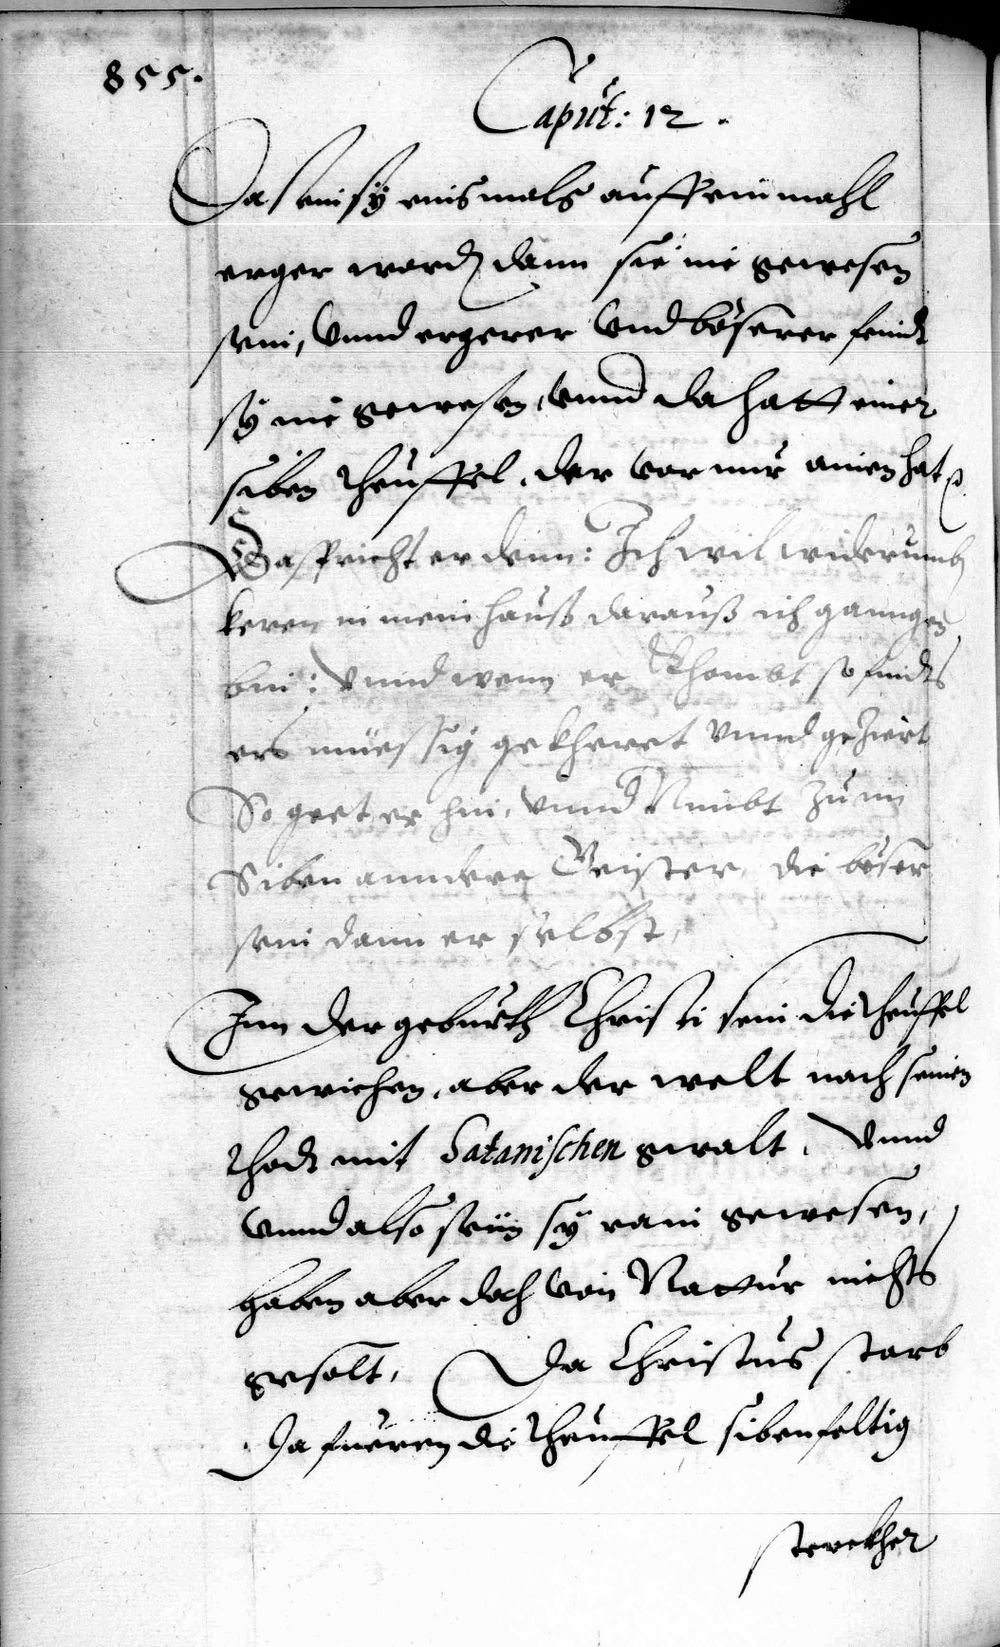 855.
Caput: 12.
Da sein sy einsmals auff ein mahl
erger worden dann sie nie gewesen
sein, Vnnd ergerer Vnd böserer feindt
sy nie gewesen, vnnd da hatt einer
siben Theuffel, der vor nur ainen hat
Da spricht er denn: Ich wil widerumb
keren in mein hauß darauß ich ganngen
bin: Vnnd wenn er Khombt so findts
ers müessig gekheret vnnd geziert
So geet er hin, vnnd Nimbt zu im
Siben anndere Geister, die böser
sein dann er selbst,
Inn der geburth Christi sein die Theuffel
gewichen, aber der welt nach seinen
Thodt mit Satanischen gwalt, Vnnd
vnnd also sein sy rain gewesen,
haben aber doch von Nattur nichts
gesolt, Da Christus starb
Da fueren die Theuffel sibenfeltig
sterckher